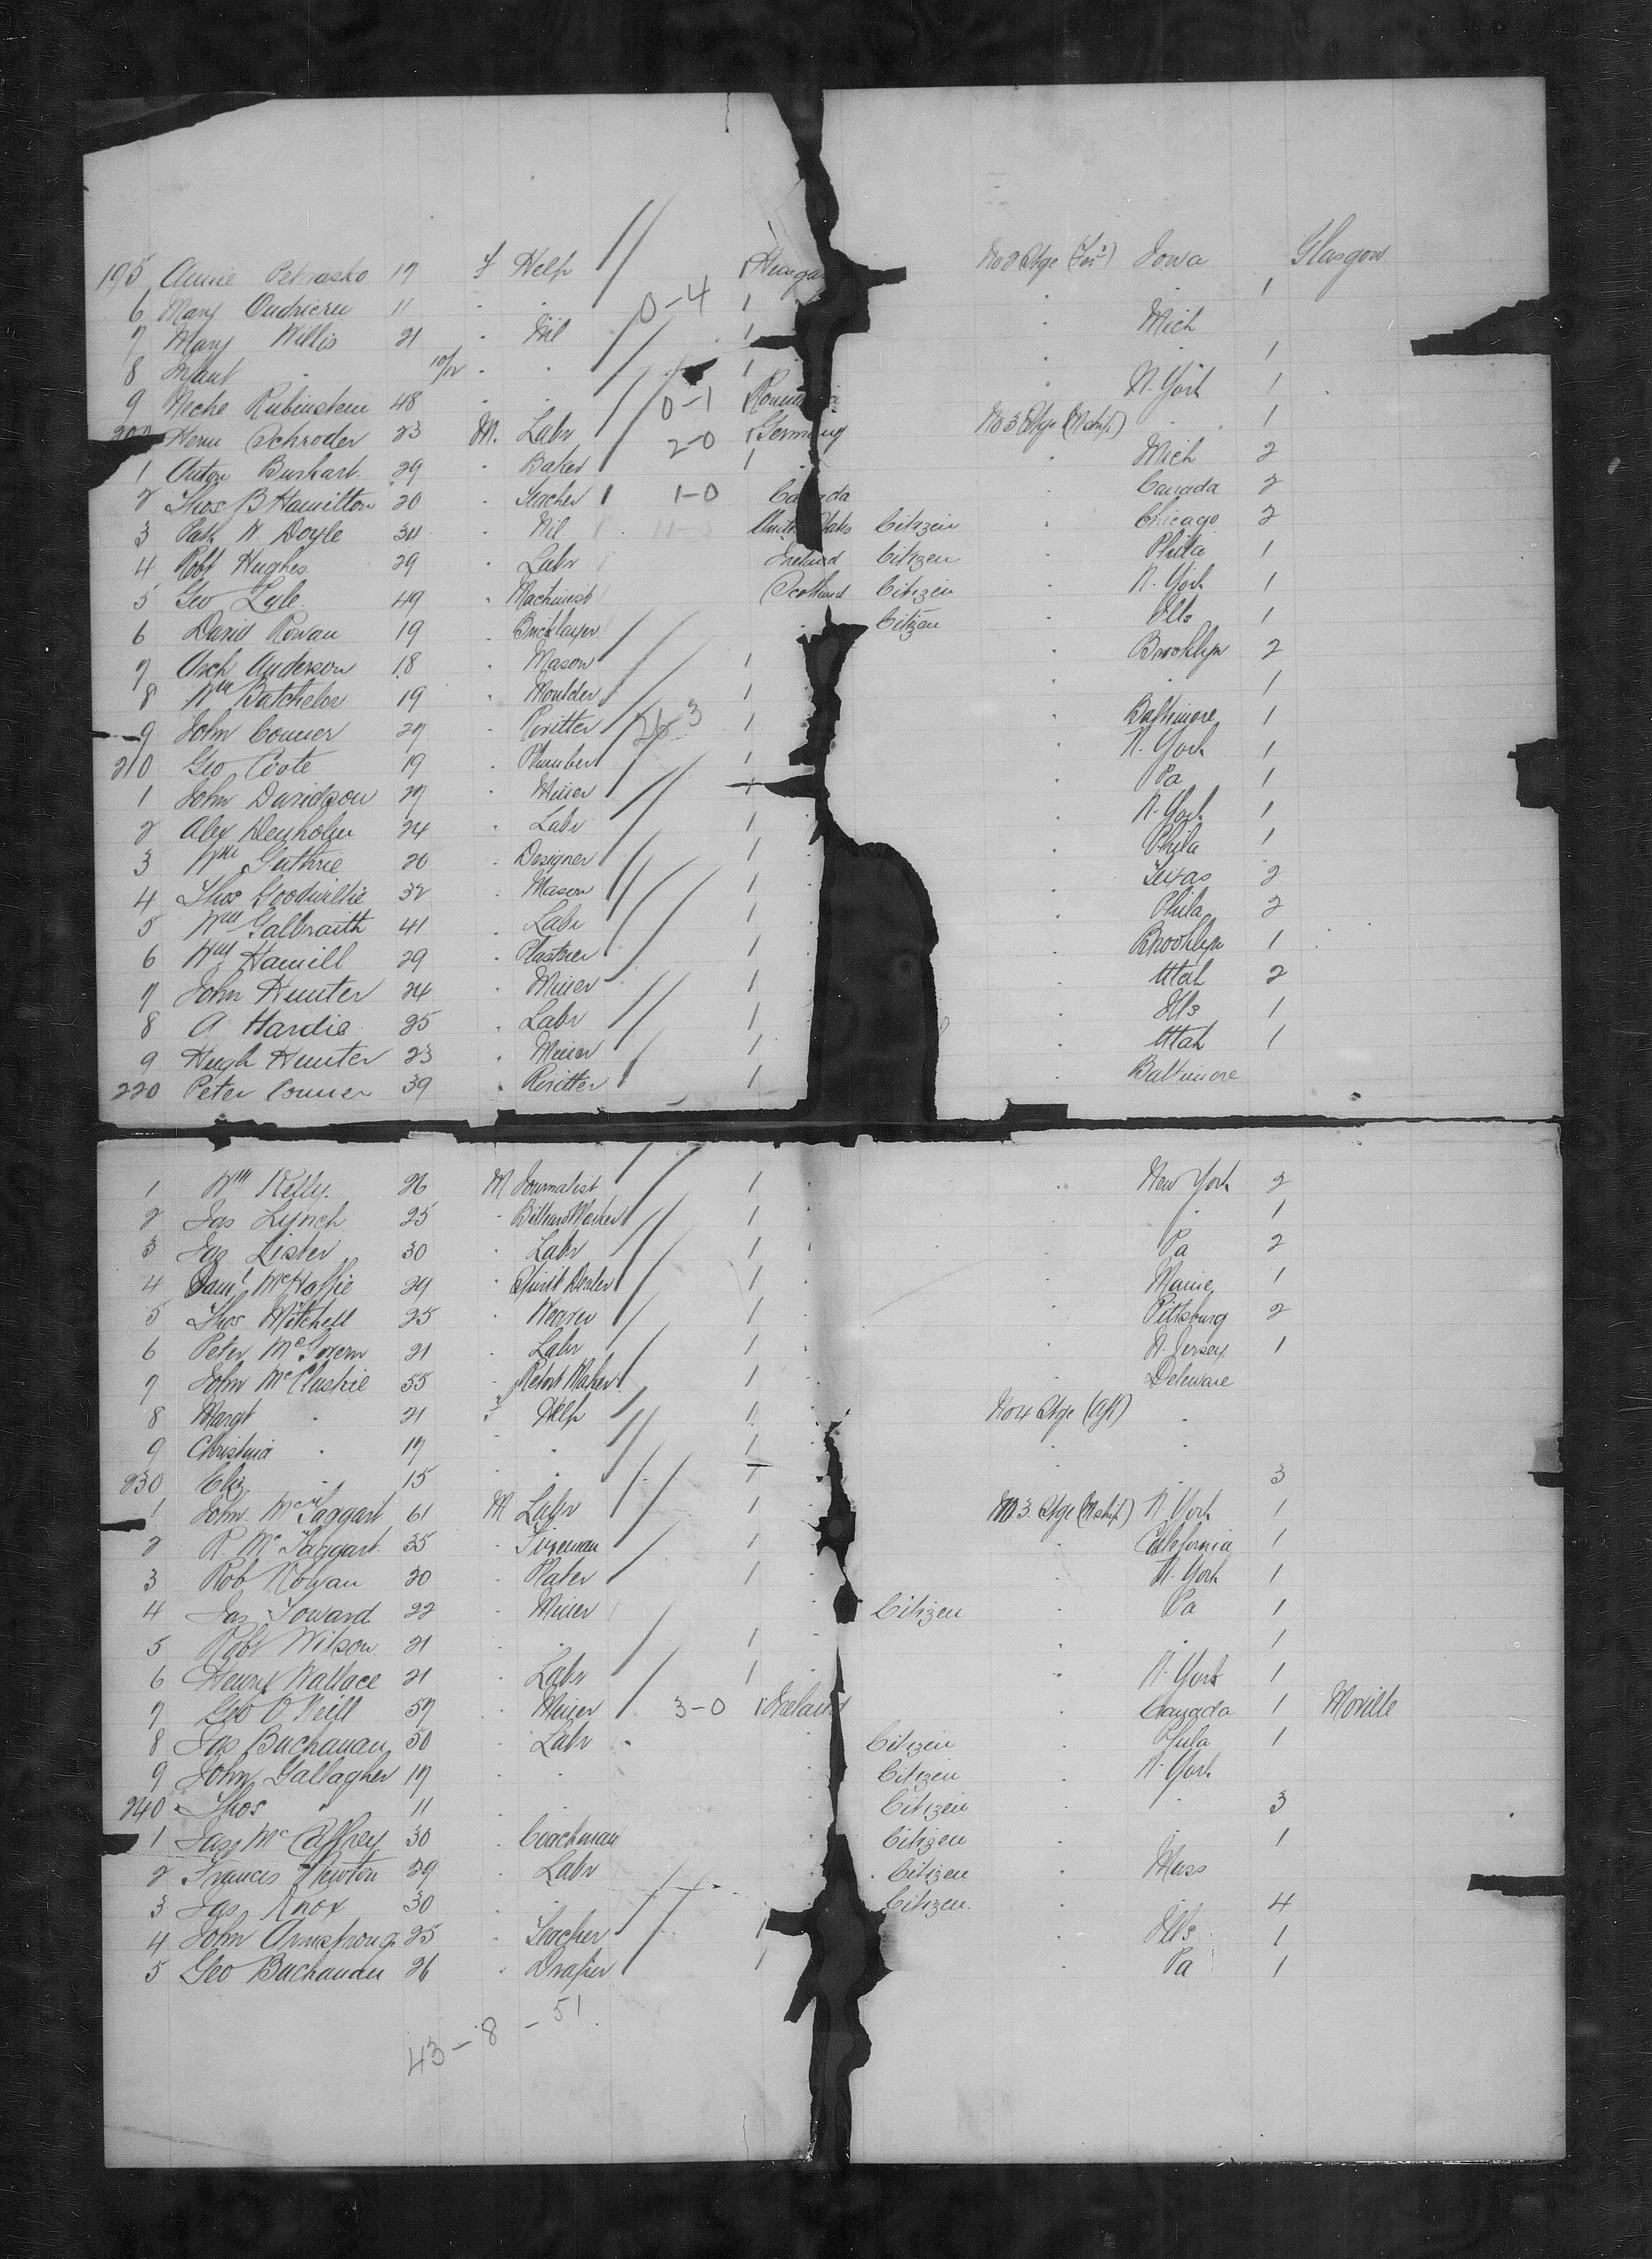 195 Annie Petrasko 17 f Help Hungar No 2 Stge (For'd) Iowa 1 Glasgow
6 Mary 11 " " 0-4 1 "
7 Mary Willis 21 " Nil 1 " Mich
8 Infant " 10/12 " " 1 " " 1
9 Meche Rubinstein 48 " " 0-1 Roumania " N. York 1
200 Herm Schroder 23 M. Labr 2-0 Germany No 3 Stge (Mdship) " 1
1 Anton Burkart 29 " Baker 1 " " Mich 2
2 Thos B Hamilton 20 " Teacher 1 1-0 Canada " Canada 2
3 Patk N. Doyle 34 " Nil 11-0 United States Citizen " Chicago 2
4 Robt Hughes 29 " Labr Ireland Citizen " Phila 1
5 Geo Lyle 49 " Machinist Scotland Citizen " N. York 1
6 David Rowan 19 " Bricklayer " Citizen " Ills 1
7 Arch Anderson 18 " Mason 1 " Brooklyn 2
8 Wm Batchelor 19 " Moulder 1 " " 1
9 John Conner 27 " Rivitter 26 3 1 " Baltimore 1
210 Geo Coote 19 " Plumber 1 " N. York 1
1 John Davidson 27 " Miner 1 " Pa 1
2 Alex Denholm 24 " Labr 1 " N. York 1
3 Wm Guthrie 20 " Designer 1 " Phila 1
4 Thos Goodwillie 32 " Mason 1 " Texas 2
5 Wm Galbraith 41 " Labr 1 " Phila 2
6 Wm Hamill 29 " Plastrer 1 " Brooklyn 1
7 John Hunter 24 " Miner 1 " Utah 2
8 A Hardie 25 " Labr 1 " Ills 1
9 Hugh Hunter 23 " Miner 1 " Utah 1
220 Peter Conner 39 " Rivitter 1 " Baltimore
1 Wm Kelly 26 M Journalist 1 " New York 2
2 Jas Lynch 25 " Billiard Marker 1 " " 1
3 Jas Lister 30 " Labr 1 " Pa 2
4 Danl McHaffie 29 " Spirit Dealer 1 " Maine 1
5 Thos Mitchell 25 " Weaver 1 " Pittsburg 2
6 Peter 21 " Labr 1 " N. Jersey 1
7 John McCluskie 55 " Retort Maker 1 " Deleware
8 Margt " 21 f Help 1 No 4 Stge (Aft) "
9 Christina " 17 " " 1 " "
230 Eliz " 15 " " 1 " " 3
1 John McTaggart 61 M Labr 1 No 3 Stge (Mdship) N. York 1
2 R McTaggart 35 " Fireman 1 " California 1
3 Rob Rowan 30 " Plater 1 " N. York 1
4 Jas Howard 22 " Miner " Citizen " Pa 1
5 Robt Wilson 21 " " 1 " " 1
6 Henry Wallace 21 " Labr 1 " N. York 1
7 Geo O'Neill 57 " Miner 3-0 1 Ireland " Canada 1 Moville
8 Jas Buchanan 50 " Labr " Citizen " Phila 1
9 John Gallagher 17 " " Citizen " N. York
240 Thos " 11 " " Citizen " " 3
1 Jas McCaffrey 30 " Coachman Citizen " " 1
2 Francis Newton 29 " Labr Citizen " Mass
3 Jas Knox 30 " " Citizen " " 4
4 John Armstrong 25 " Teacher 1 " Ills 1
5 Geo Buchanan 26 " Draper 1 " Pa 1
43-8-51